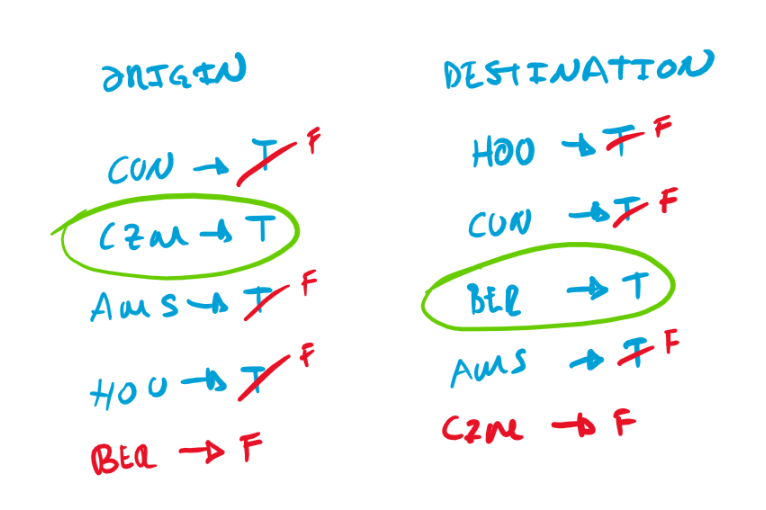 ORIGIN
CUN → T F
CZM → T
AMS → T F
HOU → T F
BER → F
DESTINATION
HOU → T F
CUN → T F
BER → T
AMS → T F
CZM → F